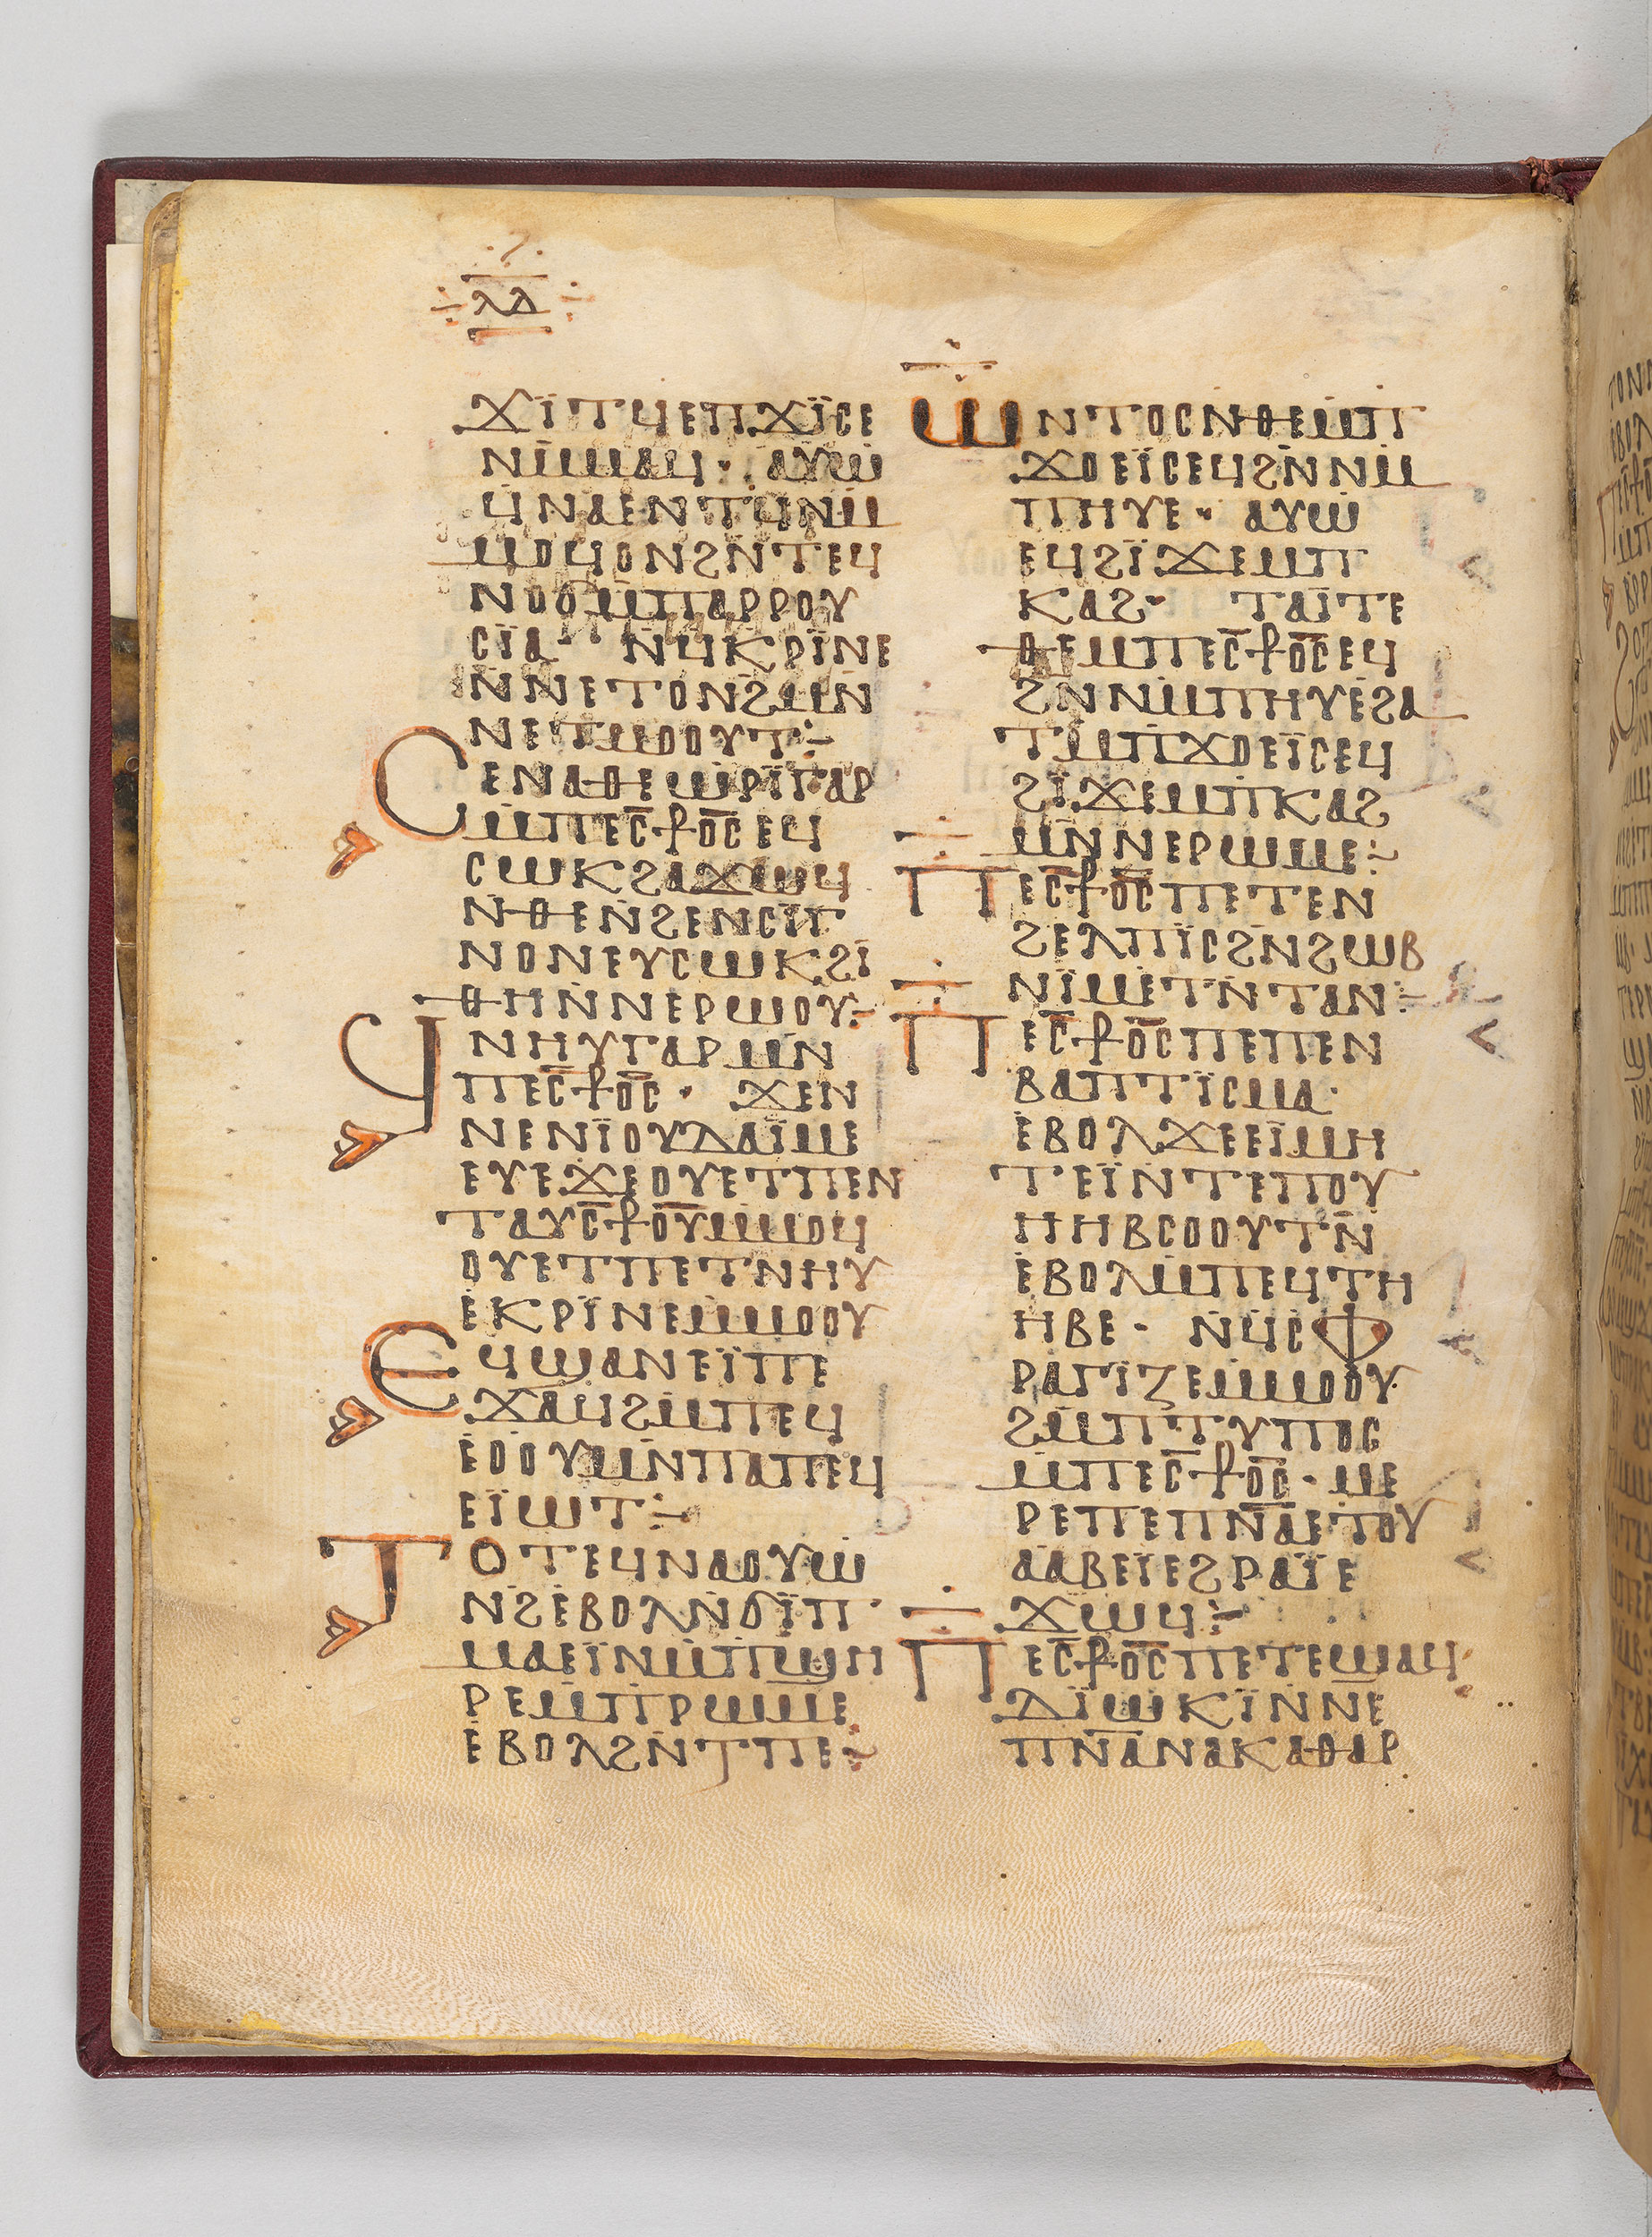 ⲗⲇ
ϫⲓ̈ⲧϥⲉⲡϫⲓ̈ⲥⲉ
ⲛⲙ̄ⲙⲁϥ· ⲁⲩⲱ
ϥⲛⲁⲉⲛⲧϥⲛⲙ̄
ⲙⲟϥⲟⲛϩⲛ̇ⲧⲉϥ
ⲛⲟϭⲙ̇ⲡⲁⲣⲣⲟⲩ
ⲥⲓ̈ⲁ· ⲛ̇ϥⲕⲣⲓ̈ⲛⲉ
ⲛ̇ⲛⲉⲧⲟⲛϩⲙⲛ̇
ⲛⲉⲧⲙⲟⲟⲩⲧ:-
Ⲥⲉⲛⲁⲑⲉⲱⲣⲓ̈ⲅⲁⲣ
ⲙ̇ⲡⲉⲥ̄⳨ⲟ̄ⲥⲉϥ
ⲥⲱⲕϩⲁϫⲱϥ
ⲛ̇ⲑⲉⲛ̇ϩⲉⲛⲥⲓ̈ⲅ
ⲛⲟⲛⲉⲩⲥⲱⲕϩⲓ̈
ⲑⲏⲛ̇ⲛⲉⲣⲱⲟⲩ:-
Ϥⲛⲏⲩⲅⲁⲣⲙⲛ̇
ⲡⲉⲥ̄⳨ⲟ̄ⲥ· ϫⲉⲛ
ⲛⲉⲛⲓ̈ⲟⲩⲇⲁⲓ̈ⲙⲉ
ⲉⲩⲉϫⲉⲟⲩⲉⲧⲡⲉⲛ
ⲧⲁⲩⲥ̄⳨ⲟ̄ⲩⲙ̇ⲙⲟϥ
ⲟⲩⲉⲧⲡⲉⲧⲛⲏⲩ
ⲉ̇ⲕⲣⲓ̈ⲛⲉⲙ̇ⲙⲟⲟⲩ
Ⲉϥϣⲁⲛⲉⲓ̈ⲡⲉ
ϫⲁϥϩⲙ̇ⲡⲉϥ
ⲉ̇ⲟⲟⲩⲙⲛ̇ⲡⲁⲡⲉϥ
ⲉⲓ̈ⲱⲧ:-
Ⲧⲟⲧⲉϥⲛⲁⲟⲩⲱ
ⲛϩⲉ̇ⲃⲟⲗⲛ̇ϭⲓ̈ⲡ
ⲙⲁⲉⲓ̈ⲛⲙ̇ⲡϣⲏ
ⲣⲉⲙ̇ⲡⲣⲱⲙⲉ
ⲉ̇ⲃⲟⲗϩⲛ̇ⲧⲡⲉ:-
Ⲱⲛⲧⲟⲥⲛ̇ⲑⲉⲙ̇ⲡ
ϫⲟⲉⲓ̈ⲥⲉϥϩⲛ̇ⲛⲙ̇
ⲡⲏⲩⲉ· ⲁⲩⲱ
ⲉϥϩⲓ̈ϫⲉⲙⲡ
ⲕⲁϩ· ⲧⲁⲓ̈ⲧⲉ
ⲑⲉⲙⲡⲉⲥ̄⳨ⲟ̄ⲥⲉϥ
ϩⲛ̇ⲛⲙ̇ⲡⲏⲩⲉ̇ϩⲁ
ⲧⲙ̇ⲡϫⲟⲉⲓ̈ⲥⲉϥ
ϩⲓ̈ϫⲉⲙ̇ⲡⲕⲁϩ
ⲙⲛ̇ⲛⲉⲣⲱⲙⲉ:-
Ⲡⲉⲥ̄⳨ⲟ̄ⲥⲡⲉⲧⲉⲛ
ϩⲉⲗⲡⲓ̈ⲥϩⲛ̇ϩⲱⲃ
ⲛⲓ̈ⲙⲉ̇ⲧⲛ̇ⲧⲁⲛ:-
Ⲡⲉⲥ̄⳨ⲟ̄ⲥⲡⲉⲡⲉⲛ
ⲃⲁⲡⲧⲓ̈ⲥⲙⲁ·
ⲉ̇ⲃⲟⲗϫⲉⲉⲓ̈ⲙⲏ
ⲧⲉⲓ̈ⲛ̇ⲧⲉⲡⲟⲩ
ⲏⲏⲃⲥⲟⲟⲩⲧⲛ̇
ⲉ̇ⲃⲟⲗⲙ̇ⲡⲉϥⲧⲏ
ⲏⲃⲉ· ⲛ̇ϥⲥⲫ
ⲣⲁⲅⲓ̈ⲍⲉⲙ̇ⲙⲟⲟⲩ
ϩⲙ̇ⲡⲧⲩⲡⲟⲥ
ⲙ̇ⲡⲉⲥ̄⳨ⲟ̄ⲥ· ⲙⲉ
ⲣⲉⲡⲉⲡⲛ̄ⲁⲉⲧⲟⲩ
ⲁⲁⲃⲉⲓ̈ⲉϩⲣⲁⲓ̈ⲉ
ϫⲱϥ:-
Ⲡⲉⲥ̄⳨ⲟ̄ⲥⲡⲉⲧⲉϣⲁϥ
ⲇⲓ̈ⲱⲕⲓ̈ⲛ̇ⲛⲉ
ⲡⲛ̄ⲁⲛⲁⲕⲁⲑⲁⲣ